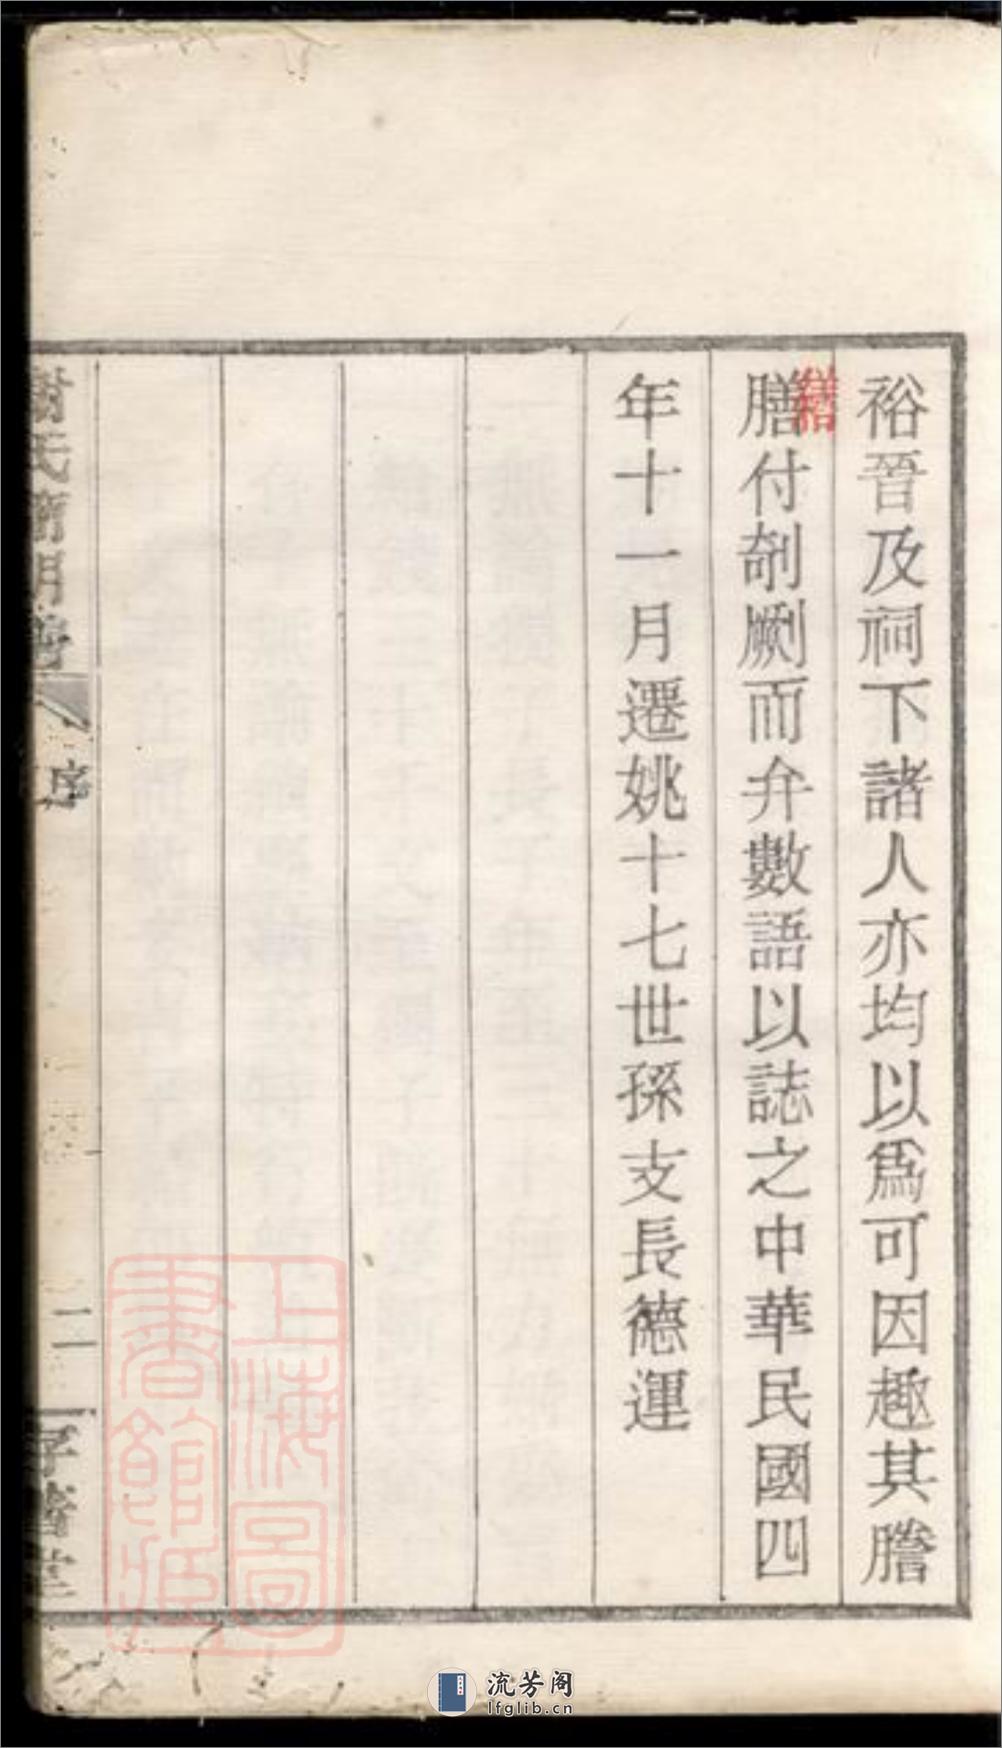 裕晉及祠下諸人亦均以爲可因趣其謄
膳付剞劂而弁數語以誌之中華民國四
年十一月遷姚十七世孫支長德運
繕
謝氏
序
二
上海圖
書館藏
流芳阁
lfglib.cn